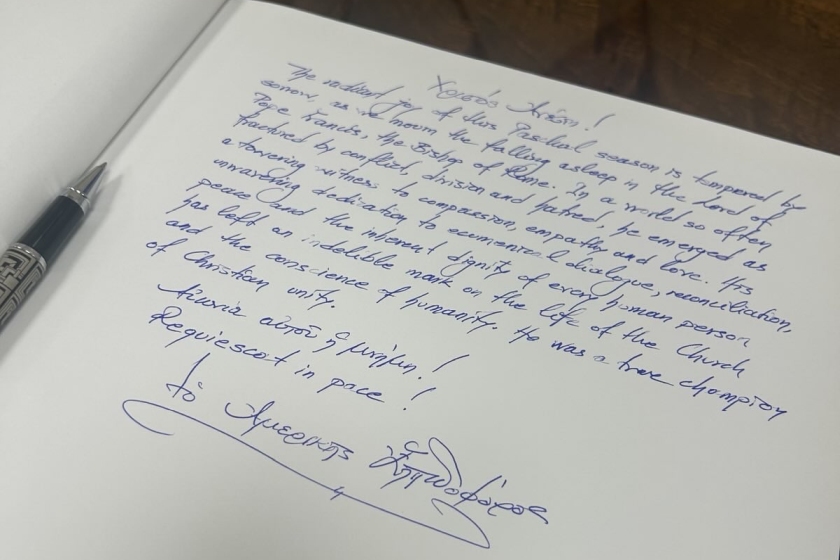 Χριστός Ἀνέστη!
The radiant joy of this Paschal season is tempered by
sorrow, as we mourn the falling asleep in the Lord of
Pope Francis, the Bishop of Rome. In a world so often
fractured by conflict, division and hatred, he emerged as
a towering witness to compassion, empathy and love. His
unwavering dedication to ecumenical dialogue, reconciliation,
peace and the inherent dignity of every human person
has left an indelible mark on the life of the Church
and the conscience of humanity. He was a true champion
of Christian unity.
Αἰωνία αὐτοῦ ἡ μνήμη!
Requiescat in pace!
† ὁ Ἀμερικῆς Ἐλπιδοφόρος